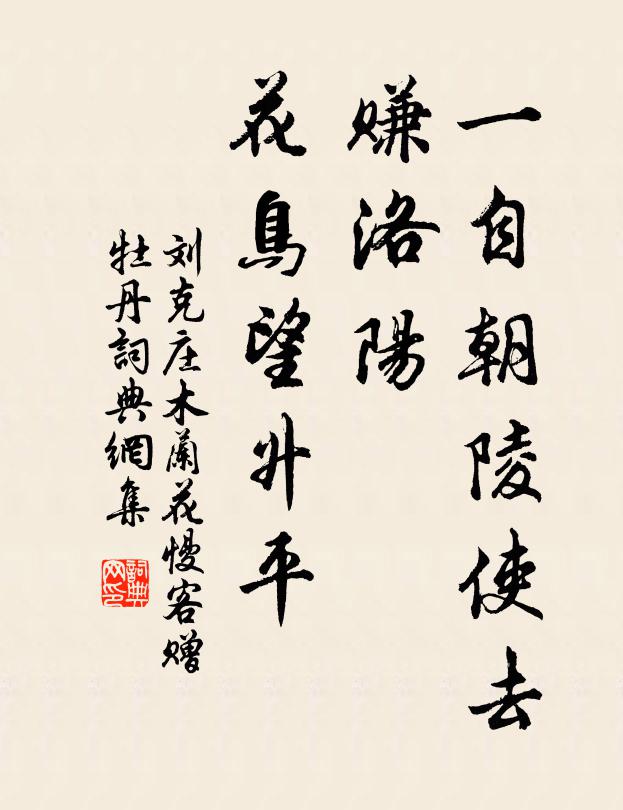 一自朝陵使去
赚洛陽
花鳥望升平
刘克庄木蘭花慢客赠
牡丹詞典網集
詞典
网印